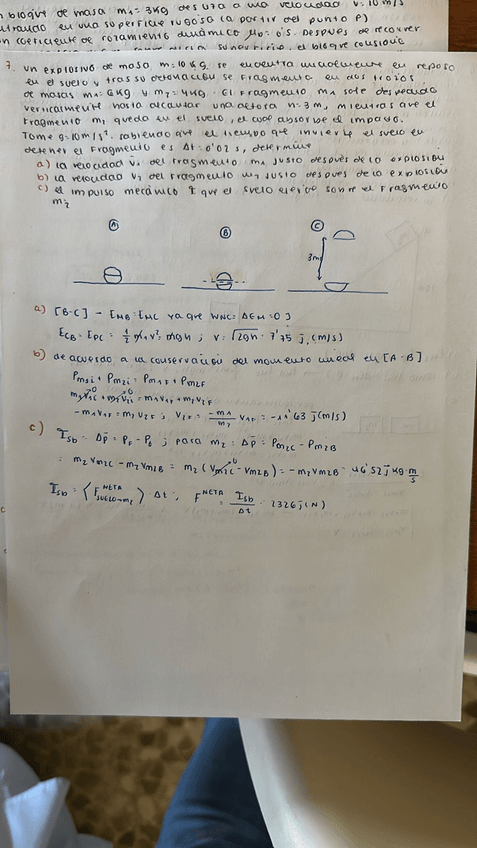 bloque de masa m₁= 3kg desliza a una velocidad v: 10 m/s
en una superficie rugosa (a partir del punto P)
coeficiente de rozamiento dinámico μD: 0'5. Después de recorrer
el bloque colisiona
7. un explosivo de masa m: 10 kg. se encuentra inicialmente en reposo
en el suelo y tras su detonación se fragmenta en dos trozos
de masas m₁= 6kg y m₂= 4kg. El fragmento m₁ sale despedido
verticalmente hasta alcanzar una altura h: 3m, mientras que el
fragmento m₂ queda en el suelo, el cual absorbe el impacto.
Tome g: 10 m/s². sabiendo que el tiempo que invierte el suelo en
detener el fragmento es Δt: 0'02 s, determine
a) la velocidad v₁ del fragmento m₁ justo después de la explosión
b) la velocidad v₂ del fragmento m₂ justo después de la explosión
c) el impulso mecánico I que el suelo ejerce sobre el fragmento
m₂
A B C
3m
a) [B-C] - EMB: EMC ya que WNC= ΔEM = 0 J
ECB = EPC = ½ m₁v² = m₁gh ; v: √2gh · 7'75 j⃗ (m/s)
b) de acuerdo a la conservación del momento lineal en [A-B]
Pm1i + Pm2i = Pm1F + Pm2F
m₁v₁i⁰ + m₂v₂i⁰ = m₁v₁F + m₂v₂F
-m₁v₁F = m₂v₂F ; v₂F = -m₁/m₂ v₁F = -11'63 j⃗ (m/s)
c) Isb = Δp⃗ = PF - P0 ; para m₂ : Δp⃗ = Pm2C - Pm2B
= m₂vm2C - m₂vm2B = m₂(vm2C⁰ - vm2B) = -m₂vm2B · 46'52 j⃗ kg m/s
Isb = ⟨F NETA SUELO-m₂⟩ Δt ; F NETA = Isb/Δt · 2326 j⃗ (N)